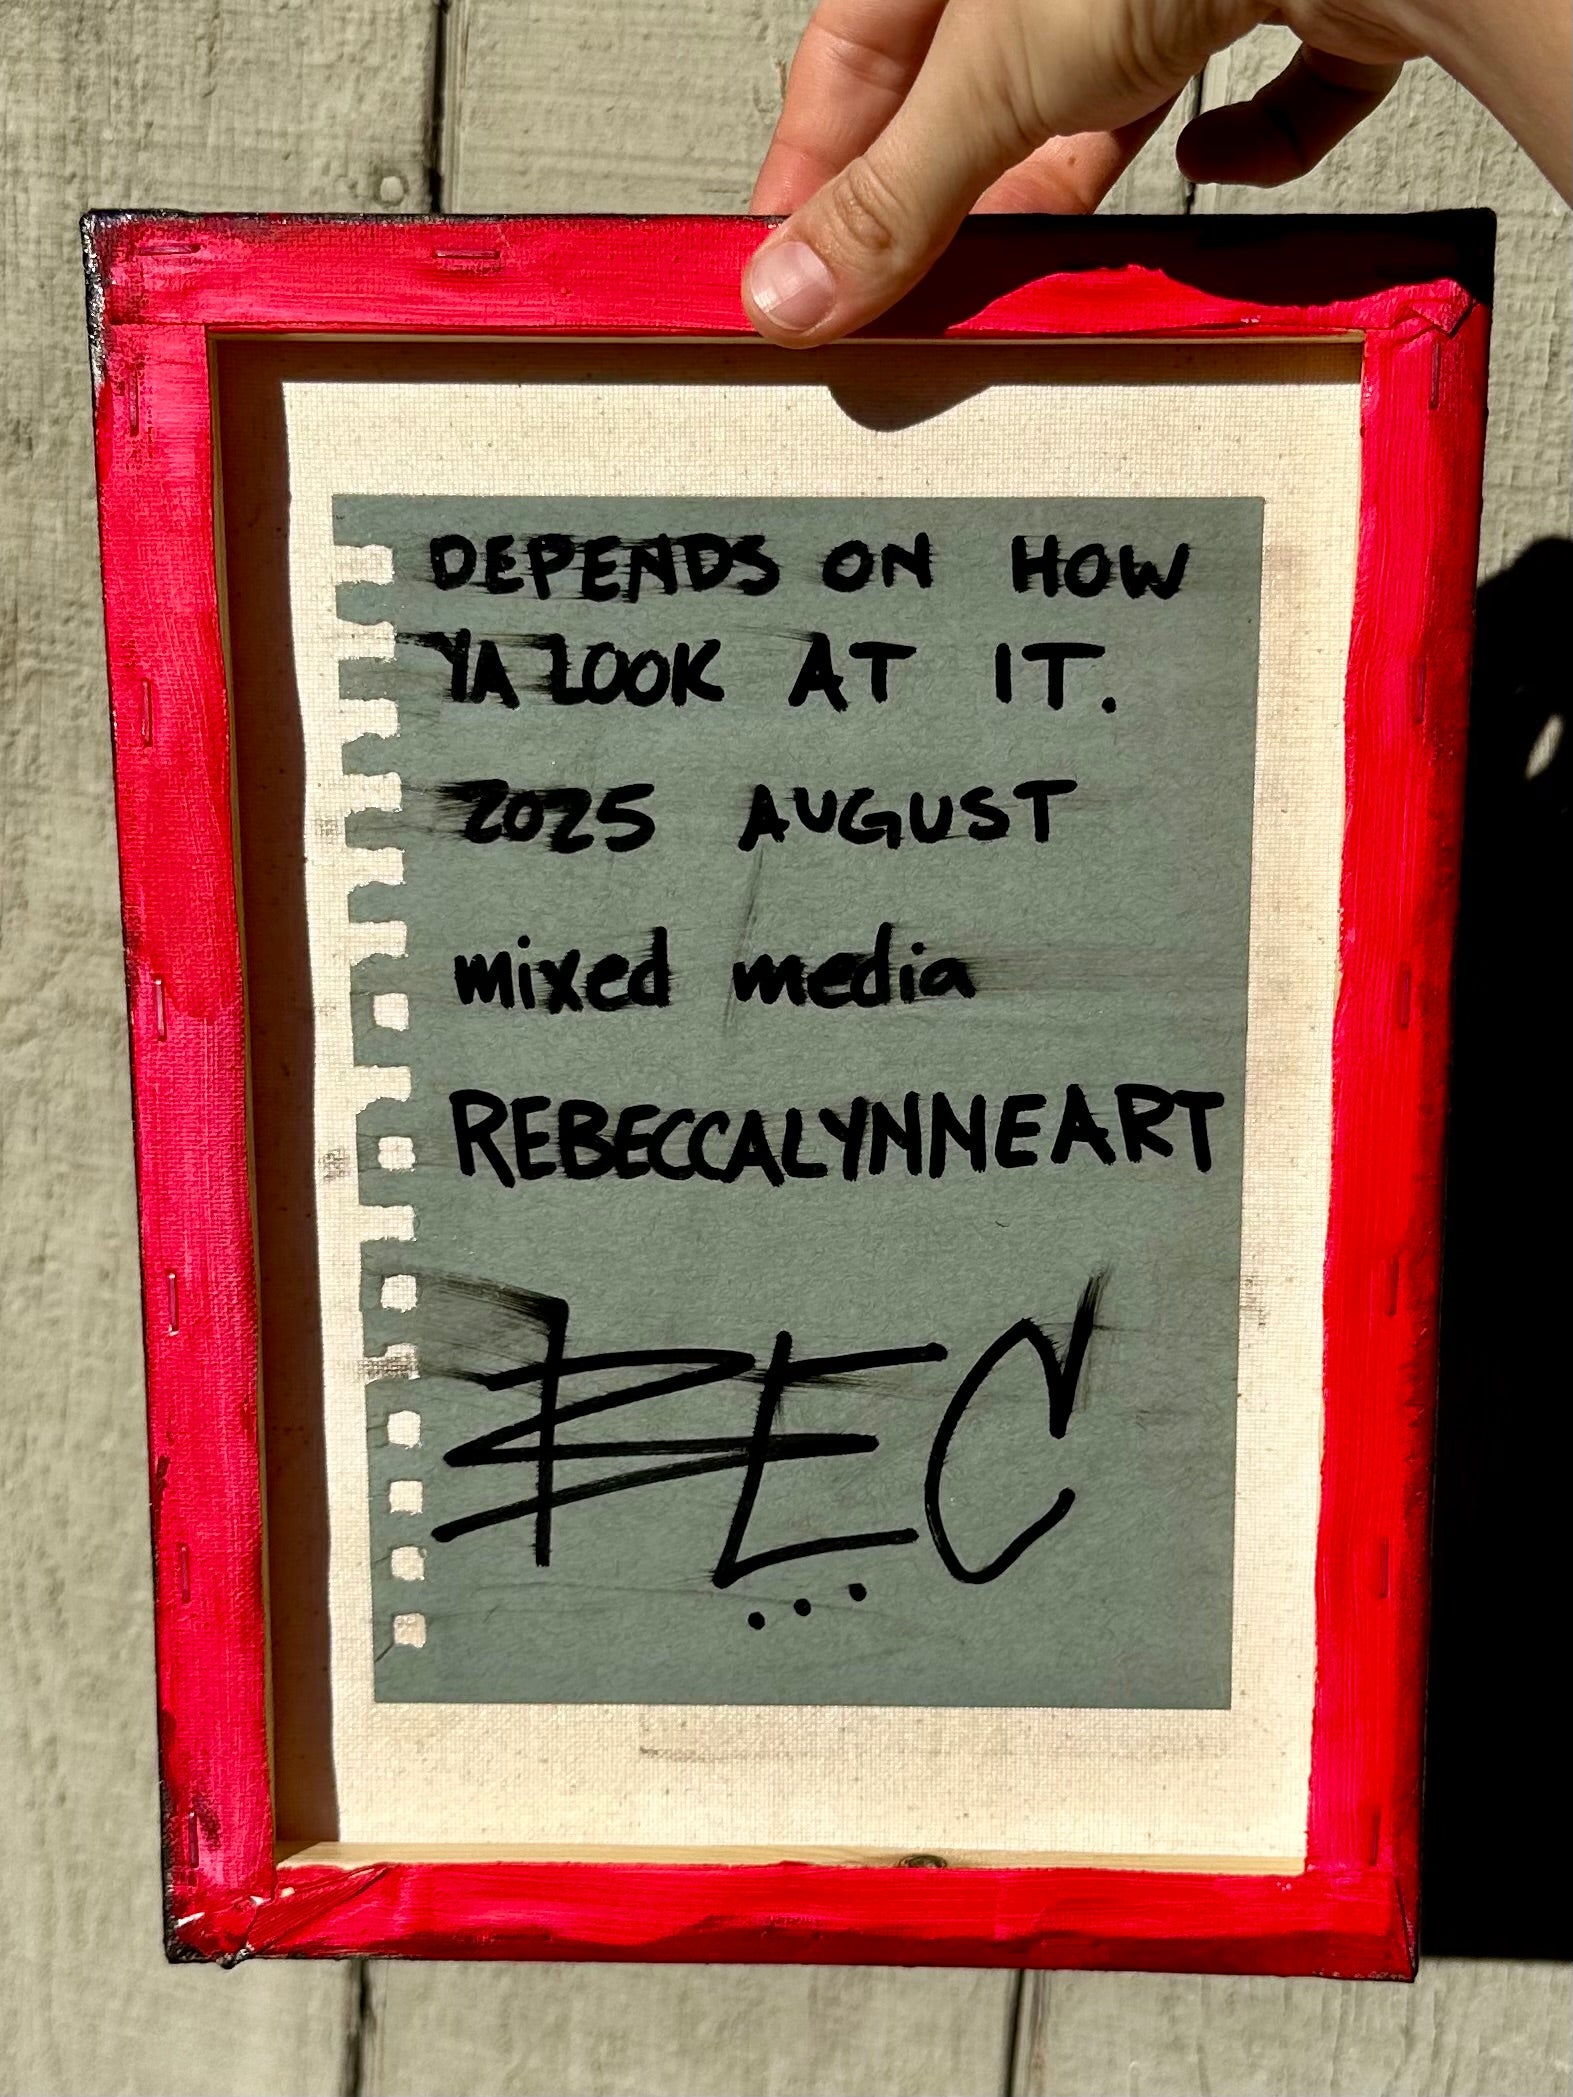 DEPENDS ON HOW
YA LOOK AT IT.
2025 AUGUST
mixed media
REBECCALYNNEART
BEC
...